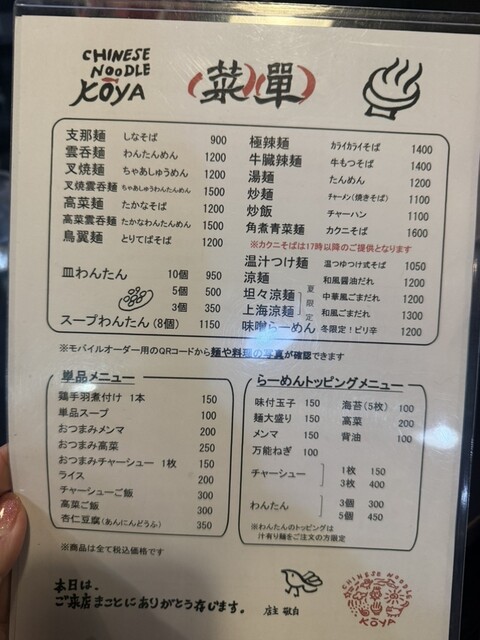 CHINESE
NOODLE
KOYA
(菜)(單)
支那麺 しなそば 900
雲呑麺 わんたんめん 1200
叉焼麺 ちゃあしゅうめん 1200
叉焼雲呑麺 ちゃあしゅうわんたんめん 1500
高菜麺 たかなそば 1200
高菜雲呑麺 たかなわんたんめん 1500
鳥翼麺 とりてばそば 1200
皿わんたん 10個 950
5個 500
3個 350
スープわんたん(8個) 1150
極辣麺 カライカライそば 1400
牛臓辣麺 牛もつそば 1400
湯麺 たんめん 1200
炒麺 チャーメン(焼きそば) 1100
炒飯 チャーハン 1100
角煮青菜麺 カクニそば 1600
※カクニそばは17時以降のご提供となります
温汁つけ麺 温つゆつけ式そば 1050
涼麺 和風醤油だれ 1200
坦々涼麺 夏限定 中華風ごまだれ 1200
上海涼麺 和風ごまだれ 1300
味噌らーめん 冬限定!ピリ辛 1200
※モバイルオーダー用のQRコードから麺や料理の写真が確認できます
単品メニュー
鶏手羽煮付け 1本 150
単品スープ 100
おつまみメンマ 200
おつまみ高菜 250
おつまみチャーシュー 1枚 150
ライス 200
チャーシューご飯 300
高菜ご飯 300
杏仁豆腐(あんにんどうふ) 350
らーめんトッピングメニュー
味付玉子 150 海苔(5枚) 100
麺大盛り 150 高菜 200
メンマ 150 背油 100
万能ねぎ 100
チャーシュー 1枚 150
3枚 400
わんたん 3個 300
5個 450
※わんたんのトッピングは
汁有り麺をご注文の方限定
※商品は全て税込価格です
本日は、
ご来店まことにありがとう存じます。
店主 敬白
CHINESE NOODLE
KOYA